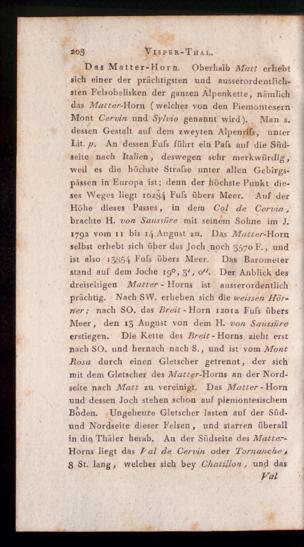 208 VISPER-THAL.
Das Matter-Horn. Oberhalb Matt erhebt
sich einer der prächtigsten und ausserordentlich-
sten Felsobelisken der ganzen Alpenkette, nämlich
das Matter-Horn (welches von den Piemontesern
Mont Cervin und Sylvio genannt wird). Man s.
dessen Gestalt auf dem zweyten Alpenriſs, unter
Lit. p. An dessen Fuſs führt ein Paſs auf die Süd-
seite nach Italien, deswegen sehr merkwürdig,
weil es die höchste Straſse unter allen Gebirgs-
pässen in Europa ist; denn der höchste Punkt die-
ses Weges liegt 10284 Fuſs übers Meer. Auf der
Höhe dieses Passes, in dem Col de Cervin,
brachte H. von Saussüre mit seinem Sohne im J.
1792 vom 11 bis 14 August zu. Das Matter-Horn
selbst erhebt sich über das Joch noch 3570 F., und
ist also 13854 Fuſs übers Meer. Das Barometer
stand auf dem Joche 19°, 3′, 0″. Der Anblick des
dreiseitigen Matter-Horns ist ausserordentlich
prächtig. Nach SW. erheben sich die weissen Hör-
ner; nach SO. das Breit-Horn 12012 Fuſs übers
Meer, den 13 August von dem H. von Saussüre
erstiegen. Die Kette des Breit-Horns zieht erst
nach SO. und hernach nach S., und ist vom Mont
Rosa durch einen Gletscher getrennt, der sich
mit dem Gletscher des Matter-Horns an der Nord-
seite nach Matt zu vereinigt. Das Matter-Horn
und dessen Joch stehen schon auf piemontesischem
Boden. Ungeheure Gletscher lasten auf der Süd-
und Nordseite dieser Felsen, und starren überall
in die Thäler herab. An der Südseite des Matter-
Horns liegt das Val de Cervin oder Tornanche,
8 St. lang, welches sich bey Chatillon, und das
Val